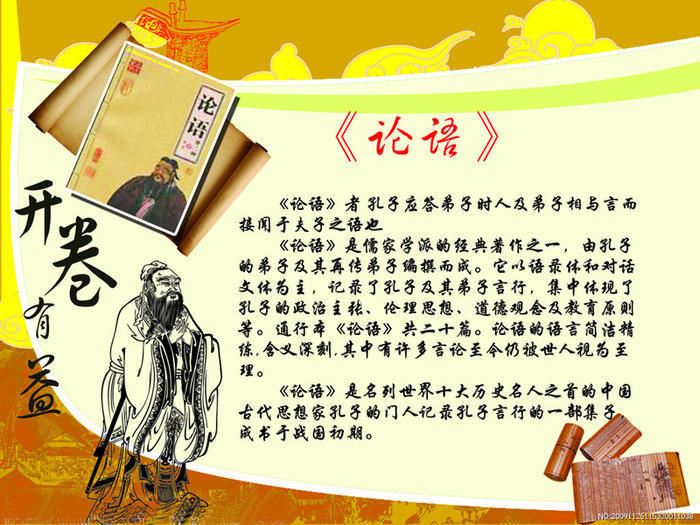 论语
《论语》
开卷有益
《论语》者孔子应答弟子时人及弟子相与言而
接闻于夫子之语也
《论语》是儒家学派的经典著作之一，由孔子
的弟子及其再传弟子编撰而成。它以语录体和对话
文体为主，记录了孔子及其弟子言行，集中体现了
孔子的政治主张、伦理思想、道德观念及教育原则
等。通行本《论语》共二十篇。论语的语言简洁精
练,含义深刻,其中有许多言论至今仍被世人视为至
理。
《论语》是名列世界十大历史名人之首的中国
古代思想家孔子的门人记录孔子言行的一部集子
成书于战国初期。